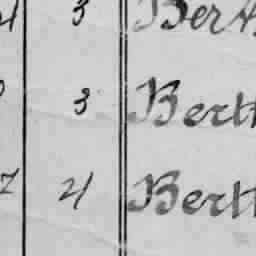 4 3 Berth
3 Berth
7 4 Berth